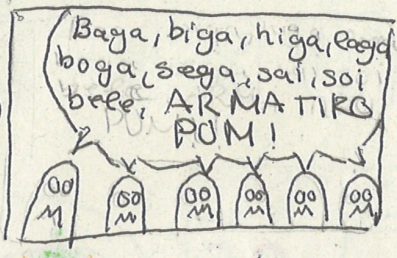 Baga, biga, higa, laga
boga, sega, sai, soi
bele, ARMA TIRO
PUM!